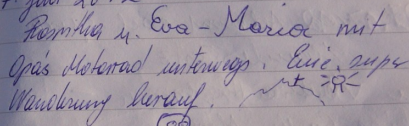 Roswitha u. Eva-Maria mit
Opas Motorrad unterwegs. Eine super
Wanderung herauf.